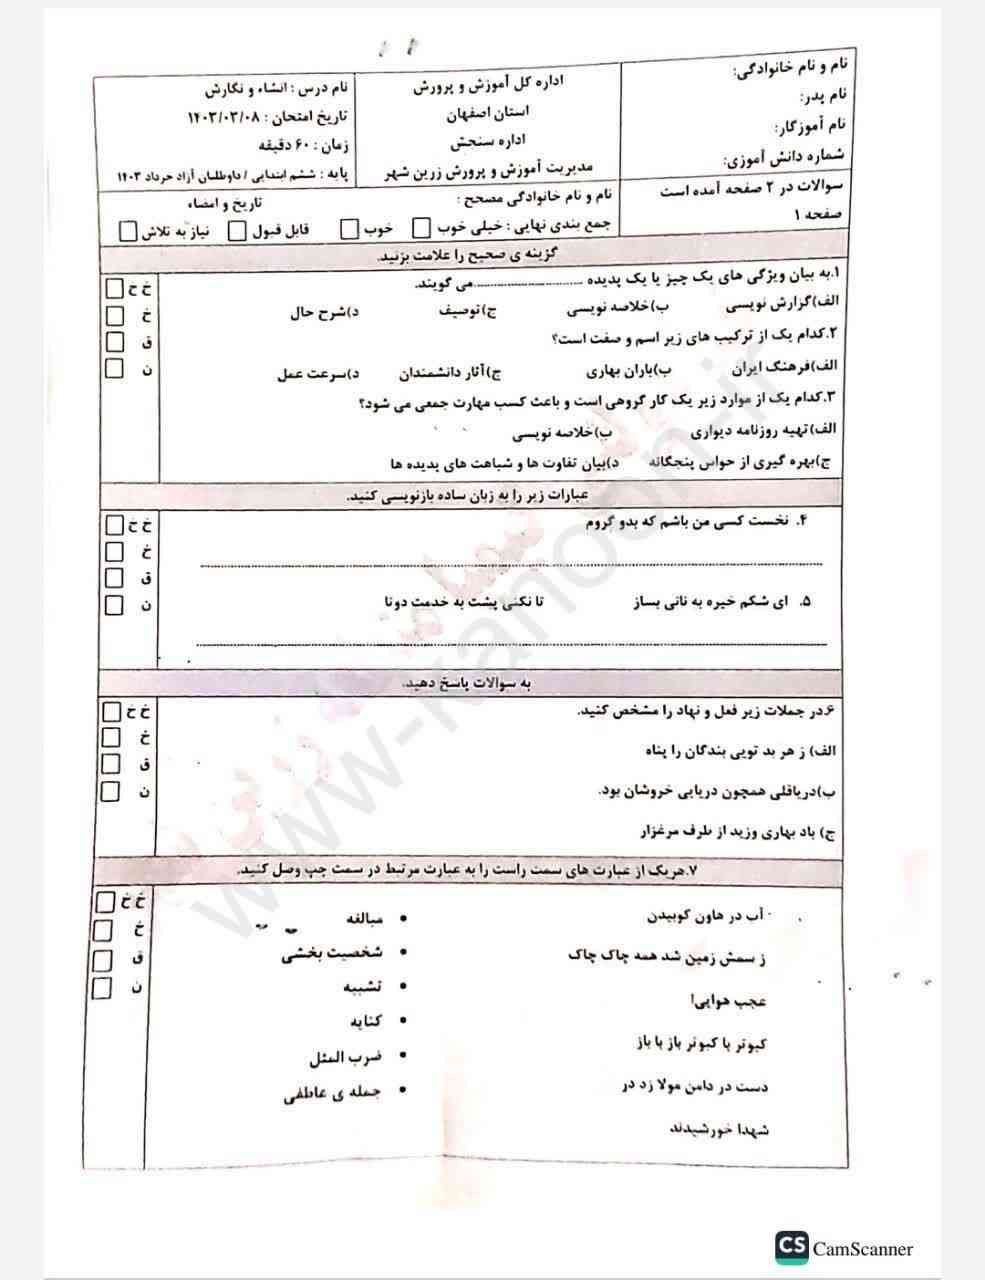 نام و نام خانوادگی:
نام پدر:
نام آموزگار:
شماره دانش آموزی:
اداره کل آموزش و پرورش
استان اصفهان
اداره سنجش
مدیریت آموزش و پرورش زرین شهر
نام درس : انشاء و نگارش
تاریخ امتحان : ۱۴۰۳/۰۳/۰۸
زمان : ۶۰ دقیقه
پایه : ششم ابتدایی / داوطلبان آزاد خرداد ۱۴۰۳
سوالات در ۲ صفحه آمده است
صفحه ۱
نام و نام خانوادگی مصحح : تاریخ و امضاء
جمع بندی نهایی : خیلی خوب خوب قابل قبول نیاز به تلاش
گزینه ی صحیح را علامت بزنید.
۱.به بیان ویژگی های یک چیز یا یک پدیده ..............................می گویند.
الف)گزارش نویسی ب)خلاصه نویسی ج)توصیف د)شرح حال
۲.کدام یک از ترکیب های زیر اسم و صفت است؟
الف)فرهنگ ایران ب)باران بهاری ج)آثار دانشمندان د)سرعت عمل
۳.کدام یک از موارد زیر یک کار گروهی است و باعث کسب مهارت جمعی می شود؟
الف)تهیه روزنامه دیواری ب)خلاصه نویسی
ج)بهره گیری از حواس پنجگانه د)بیان تفاوت ها و شباهت های پدیده ها
خ خ
خ
ق
ن
عبارات زیر را به زبان ساده بازنویسی کنید.
۴. نخست کسی من باشم که بدو گروم
۵. ای شکم خیره به نانی بساز تا نکنی پشت به خدمت دوتا
خ خ
خ
ق
ن
به سوالات پاسخ دهید.
۶.در جملات زیر فعل و نهاد را مشخص کنید.
الف) ز هر بد تویی بندگان را پناه
ب)دریاقلی همچون دریایی خروشان بود.
ج) باد بهاری وزید از طرف مرغزار
خ خ
خ
ق
ن
۷.هریک از عبارت های سمت راست را به عبارت مرتبط در سمت چپ وصل کنید.
آب در هاون کوبیدن
ز سمش زمین شد همه چاک چاک
عجب هوایی!
کبوتر با کبوتر باز با باز
دست در دامن مولا زد در
شهدا خورشیدند
• مبالغه
• شخصیت بخشی
• تشبیه
• کنایه
• ضرب المثل
• جمله ی عاطفی
خ خ
خ
ق
ن
www-kanoon-ir
CS CamScanner